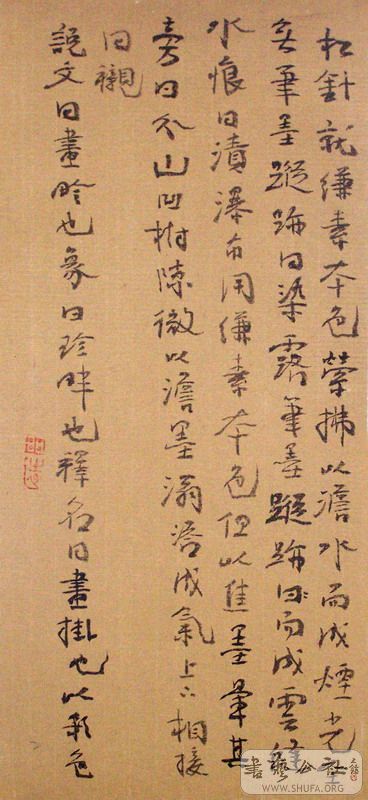 松針就縑素本色縈拂以澹水而成煙光全
無筆墨蹤跡曰染露筆墨蹤跡而成雲縫
水痕曰漬瀑布用縑素本色但以焦墨暈其
旁曰分山凹樹隙微以澹墨滃溚成氣上下相接
曰襯
說文曰畫畛也象曰畛畔也釋名曰畫掛也以彩色
書藝公社
WWW.SHUFA.ORG